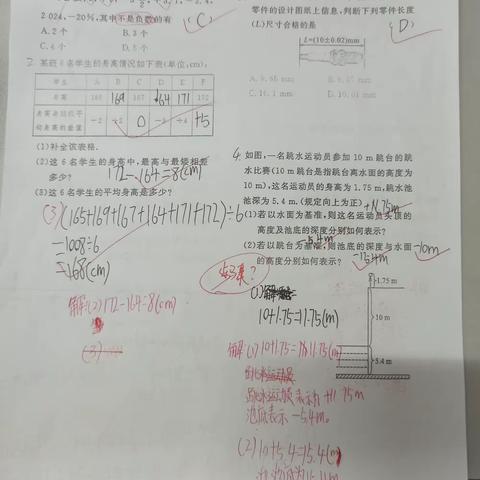 2 024,-20%,其中不是负数的有
(C)
A.2个 B.3个
C.4个 D.5个
2.某班6名学生的身高情况如下表(单位:cm):
学生 A B C D E F
身高 165 169 167 164 171 172
身高与班级平均身高的差值 -2 +2 0 -3 +4 +5
(1)补全该表格.
(2)这6名学生的身高中,最高与最矮相差多少?
172-164=8(cm)
(3)这6名学生的平均身高是多少?
(3)(165+169+167+164+171+172)÷6
=1008÷6
=168(cm)
解:(2)172-164=8(cm)
(3)
零件的设计图纸上信息,判断下列零件长度
(L)尺寸合格的是
(D)
L=(10±0.02)mm
A. 9.68 mm B. 9.97 mm
C. 10.1 mm D. 10.01 mm
4.如图,一名跳水运动员参加10 m跳台的跳
水比赛(10 m跳台是指跳台离水面的高度为
10 m),这名运动员的身高为1.75 m,跳水池
池深为5.4 m.(规定向上为正)
+11.75m
(1)若以水面为基准,则这名运动员头顶的
高度及池底的深度分别如何表示?
-5.4m
(2)若以跳台为基准,则池底的深度与水面
的高度分别如何表示?
-10m
-15.4m
1.75 m
10 m
5.4 m
(1)
10+1.75=11.75(m)
解:(1)10+1.75=11.75(m)
跳水运动员表示为+11.75m
池底表示-5.4m。
(2)10+5.4=15.4(m)